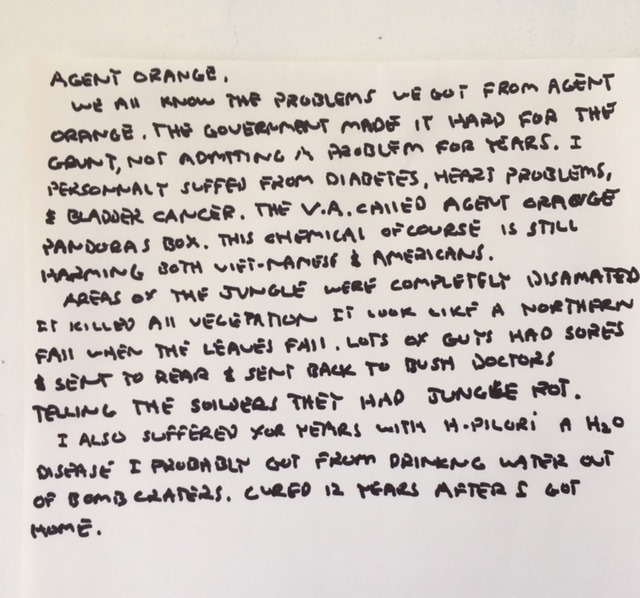 AGENT ORANGE.
WE All KNOW THE PROBLEMS WE GOT FROM AGENT
ORANGE. THE GOVERNMENT MADE IT HARD FOR THE
GRUNT, NOT ADMITING PROBLEM FOR YEARS. I
PERSONNALY SUFFED FROM DIABETES, HEART PROBLEMS,
& BLADDER CANCER. THE V.A. CAllED AGENT ORANGE
PANDORAS BOX. THIS CHEMICAL OFCOURSE IS STILL
HARMING BOTH VIET-NAMESE & AMERICANS.
AREAS OF THE JUNGLE WERE COMPLETELY DISAMATED
IT KILLED All VEGETATION IT LOOK LIKE A NORTHERN
FAll WHEN THE LEAVES FAll. LOTS OF GUYS HAD SORES
& SENT TO REAR & SENT BACK TO BUSH DOCTORS
TELLING THE SOILDERS THEY HAD JUNGLE ROT.
I ALSO SUFFERED FOR YEARS WITH H-PILORI A H2O
DISEASE I PROBABLY GOT FROM DRINKNG WATER OUT
OF BOMB CRATERS. CURED 12 YEARS AFTER I GOT
HOME.